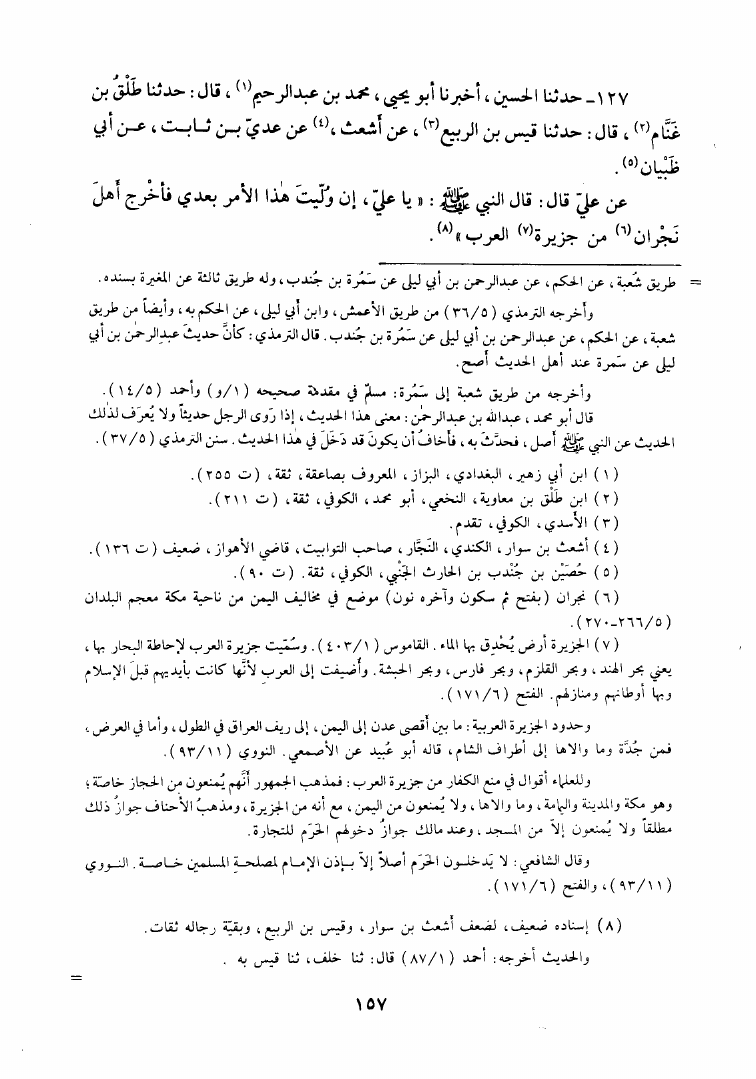 ١٢٧ـ حدثنا الحسين، أخبرنا أبو يحيى، محمد بن عبدالرحيم(١)، قال: حدثنا طَلْقُ بن
غَنَّام(٢)، قال: حدثنا قيس بن الربيع(٣)، عن أشعث،(٤) عن عديّ بـن ثـابـت، عـن أبي
ظَبْيان(٥).
عن عليّ قال: قال النبي ﷺ: «يا عليّ، إن وُلّيتَ هٰذا الأمر بعدي فأخْرج أهلَ
نَجْران(٦) من جزيرة(٧) العرب»(٨).
= طريق شُعبة، عن الحكم، عن عبدالرحمن بن أبي ليلى عن سَمُرة بن جُندب، وله طريق ثالثة عن المغيرة بسنده.
وأخرجه الترمذي (٣٦/٥) من طريق الأعمش، وابن أبي ليلى، عن الحكم به، وأيضاً من طريق
شعبة، عن الحكم، عن عبدالرحمن بن أبي ليلى عن سَمُرة بن جُندب. قال الترمذي: كأنَّ حديثَ عبدالرحمٰن بن أبي
ليلى عن سَمرة عند أهل الحديث أصح.
وأخرجه من طريق شعبة إلى سَمُرة: مسلمٌ في مقدمة صحيحه (١/و) وأحمد (١٤/٥).
قال أبو محمد، عبدالله بن عبدالرحمٰن: معنى هذا الحديث، إذا رَوى الرجل حديثاً ولا يُعرَف لذٰلك
الحديث عن النبي ﷺ أصل، فحدَّث به، فأخافُ أن يكونَ قد دَخَلَ في هٰذا الحديث. سنن الترمذي (٣٧/٥).
(١) ابن أبي زهير، البغدادي، البزاز، المعروف بصاعقة، ثقة، (ت ٢٥٥).
(٢) ابن طَلْق بن معاوية، النخعي، أبو محمد، الكوفي، ثقة، (ت ٢١١).
(٣) الأسدي، الكوفي، تقدم.
(٤) أشعث بن سوار، الكندي، النَجَّار، صاحب التوابيت، قاضي الأهواز، ضعيف (ت ١٣٦).
(٥) حُصَيْن بن جُنْدب بن الحارث الجَنْبي، الكوفي، ثقة. (ت ٩٠).
(٦) نجران (بفتح ثم سكون وآخره نون) موضع في مخاليف اليمن من ناحية مكة معجم البلدان
(٢٦٦/٥-٢٧٠).
(٧) الجزيرة أرض يُحْدِق بها الماء. القاموس (٤٠٣/١). وسُمّيت جزيرة العرب لإحاطة البحار بها،
يعني بحر الهند، وبحر القلزم، وبحر فارس، وبحر الحبشة. وأُضيفت إلى العرب لأنَّها كانت بأيديهم قبلَ الإسلام
وبها أوطانهم ومنازلهم. الفتح (١٧١/٦).
وحدود الجزيرة العربية: ما بين أقصى عدن إلى اليمن، إلى ريف العراق في الطول، وأما في العرض،
فمن جُدَّة وما والاها إلى أطراف الشام، قاله أبو عُبيد عن الأصمعي. النووي (٩٣/١١).
وللعلماء أقوال في منع الكفار من جزيرة العرب: فمذهب الجمهور أنَّهم يُمنعون من الحجاز خاصّة؛
وهو مكة والمدينة واليمامة، وما والاها، ولا يُمنعون من اليمن، مع أنه من الجزيرة، ومذهبُ الأحناف جوازُ ذلك
مطلقاً ولا يُمنعون إلاّ من المسجد، وعند مالك جوازُ دخولهم الحَرَم للتجارة.
وقال الشافعي: لا يَدخلـون الحَرَم أصلاً إلاّ بـإذن الإمـام لمصلحـةِ المسلمين خـاصـة. النـووي
(٩٣/١١)، والفتح (١٧١/٦).
(٨) إسناده ضعيف، لضعف أشعث بن سوار، وقيس بن الربيع، وبقيّة رجاله ثقات.
والحديث أخرجه: أحمد (٨٧/١) قال: ثنا خلف، ثنا قيس به.
=
١٥٧